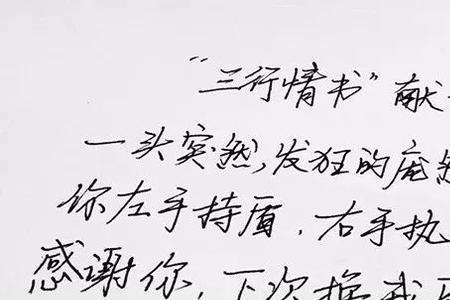 “三行情书”献
一头突然,发狂的
你左手持盾,右手执
感谢你,下次换我